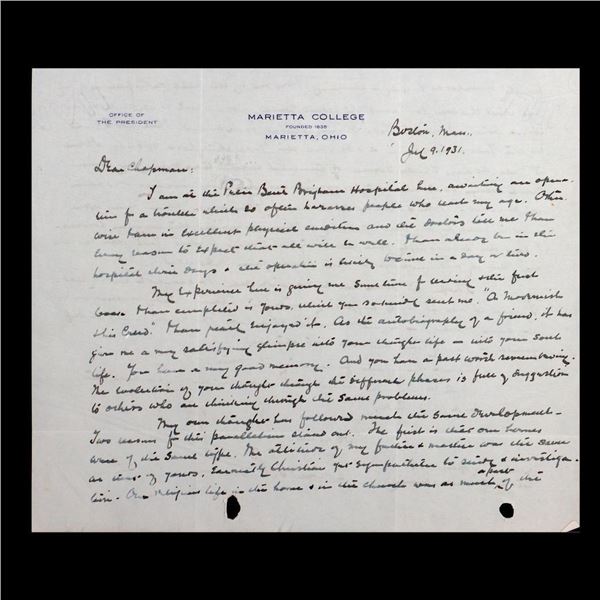 OFFICE OF
THE PRESIDENT
MARIETTA COLLEGE
FOUNDED 1835
MARIETTA, OHIO
Boston, Mass.
9, 1931.
Dear Chapman:
I am at the Peter Bent Brigham Hospital here, awaiting an opera-
tion for a trouble which so often harasses people who reach my age. Other-
wise I am in excellent physical condition and the doctors tell me I have
every reason to expect that all will be well. I have already been in the
hospital three days & the operation is likely to come in a day or two.
My experience here is giving me some time for reading & the first
book I have completed is yours, which you so kindly sent me. "A Modernist
& his Creed." I have greatly enjoyed it. As the autobiography of a friend, it has
given me a very satisfying glimpse into your thought life & into your soul
life. You have a very good memory. And you have a past worth remembering.
The evolution of your thought through the different phases is full of suggestion
to others who are thinking through the same problems.
My own thought has followed much the same development.
Two reasons for this parallelism stand out. The first is that our homes
were of the same type. The attitude of my father & mother was the same
as that of yours, earnestly Christian yet sympathetic to study & investiga-
tion. Our religious life in the home & in the church was as much a part of the